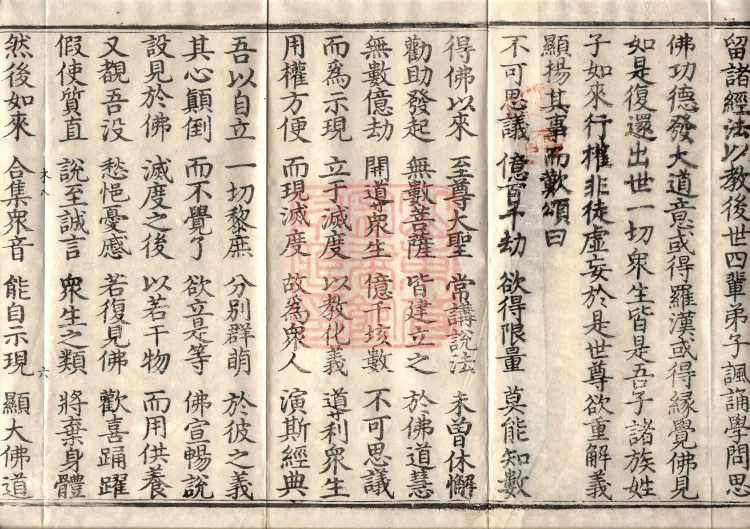 留諸經法以教後世四輩弟子諷誦學問思
佛功德發大道意或得羅漢或得緣覺佛見
如是復還出世一切衆生皆是吾子諸族姓
子如來行權非徒虛妄於是世尊欲重解義
顯揚其事而歎頌曰
不可思議 億百千劫 欲得限量 莫能知數
得佛以來 至尊大聖 常講說法 未曾休懈
勸助發起 無數菩薩 皆建立之 於佛道慧
無數億劫 開導衆生 億千垓數 不可思議
而爲示現 立于滅度 以教化義 導利衆生
用權方便 而現滅度 故爲衆人 演斯經典
吾以自立 一切黎庶 分別群萌 於彼之義
其心顛倒 而不覺了 欲立是等 佛宣暢說
設見於佛 滅度之後 以若干物 而用供養
又觀吾没 愁悒憂慼 若復見佛 歡喜踊躍
假使質直 說至誠言 衆生之類 將棄身體
然後如來 合集衆音 能自示現 顯大佛道